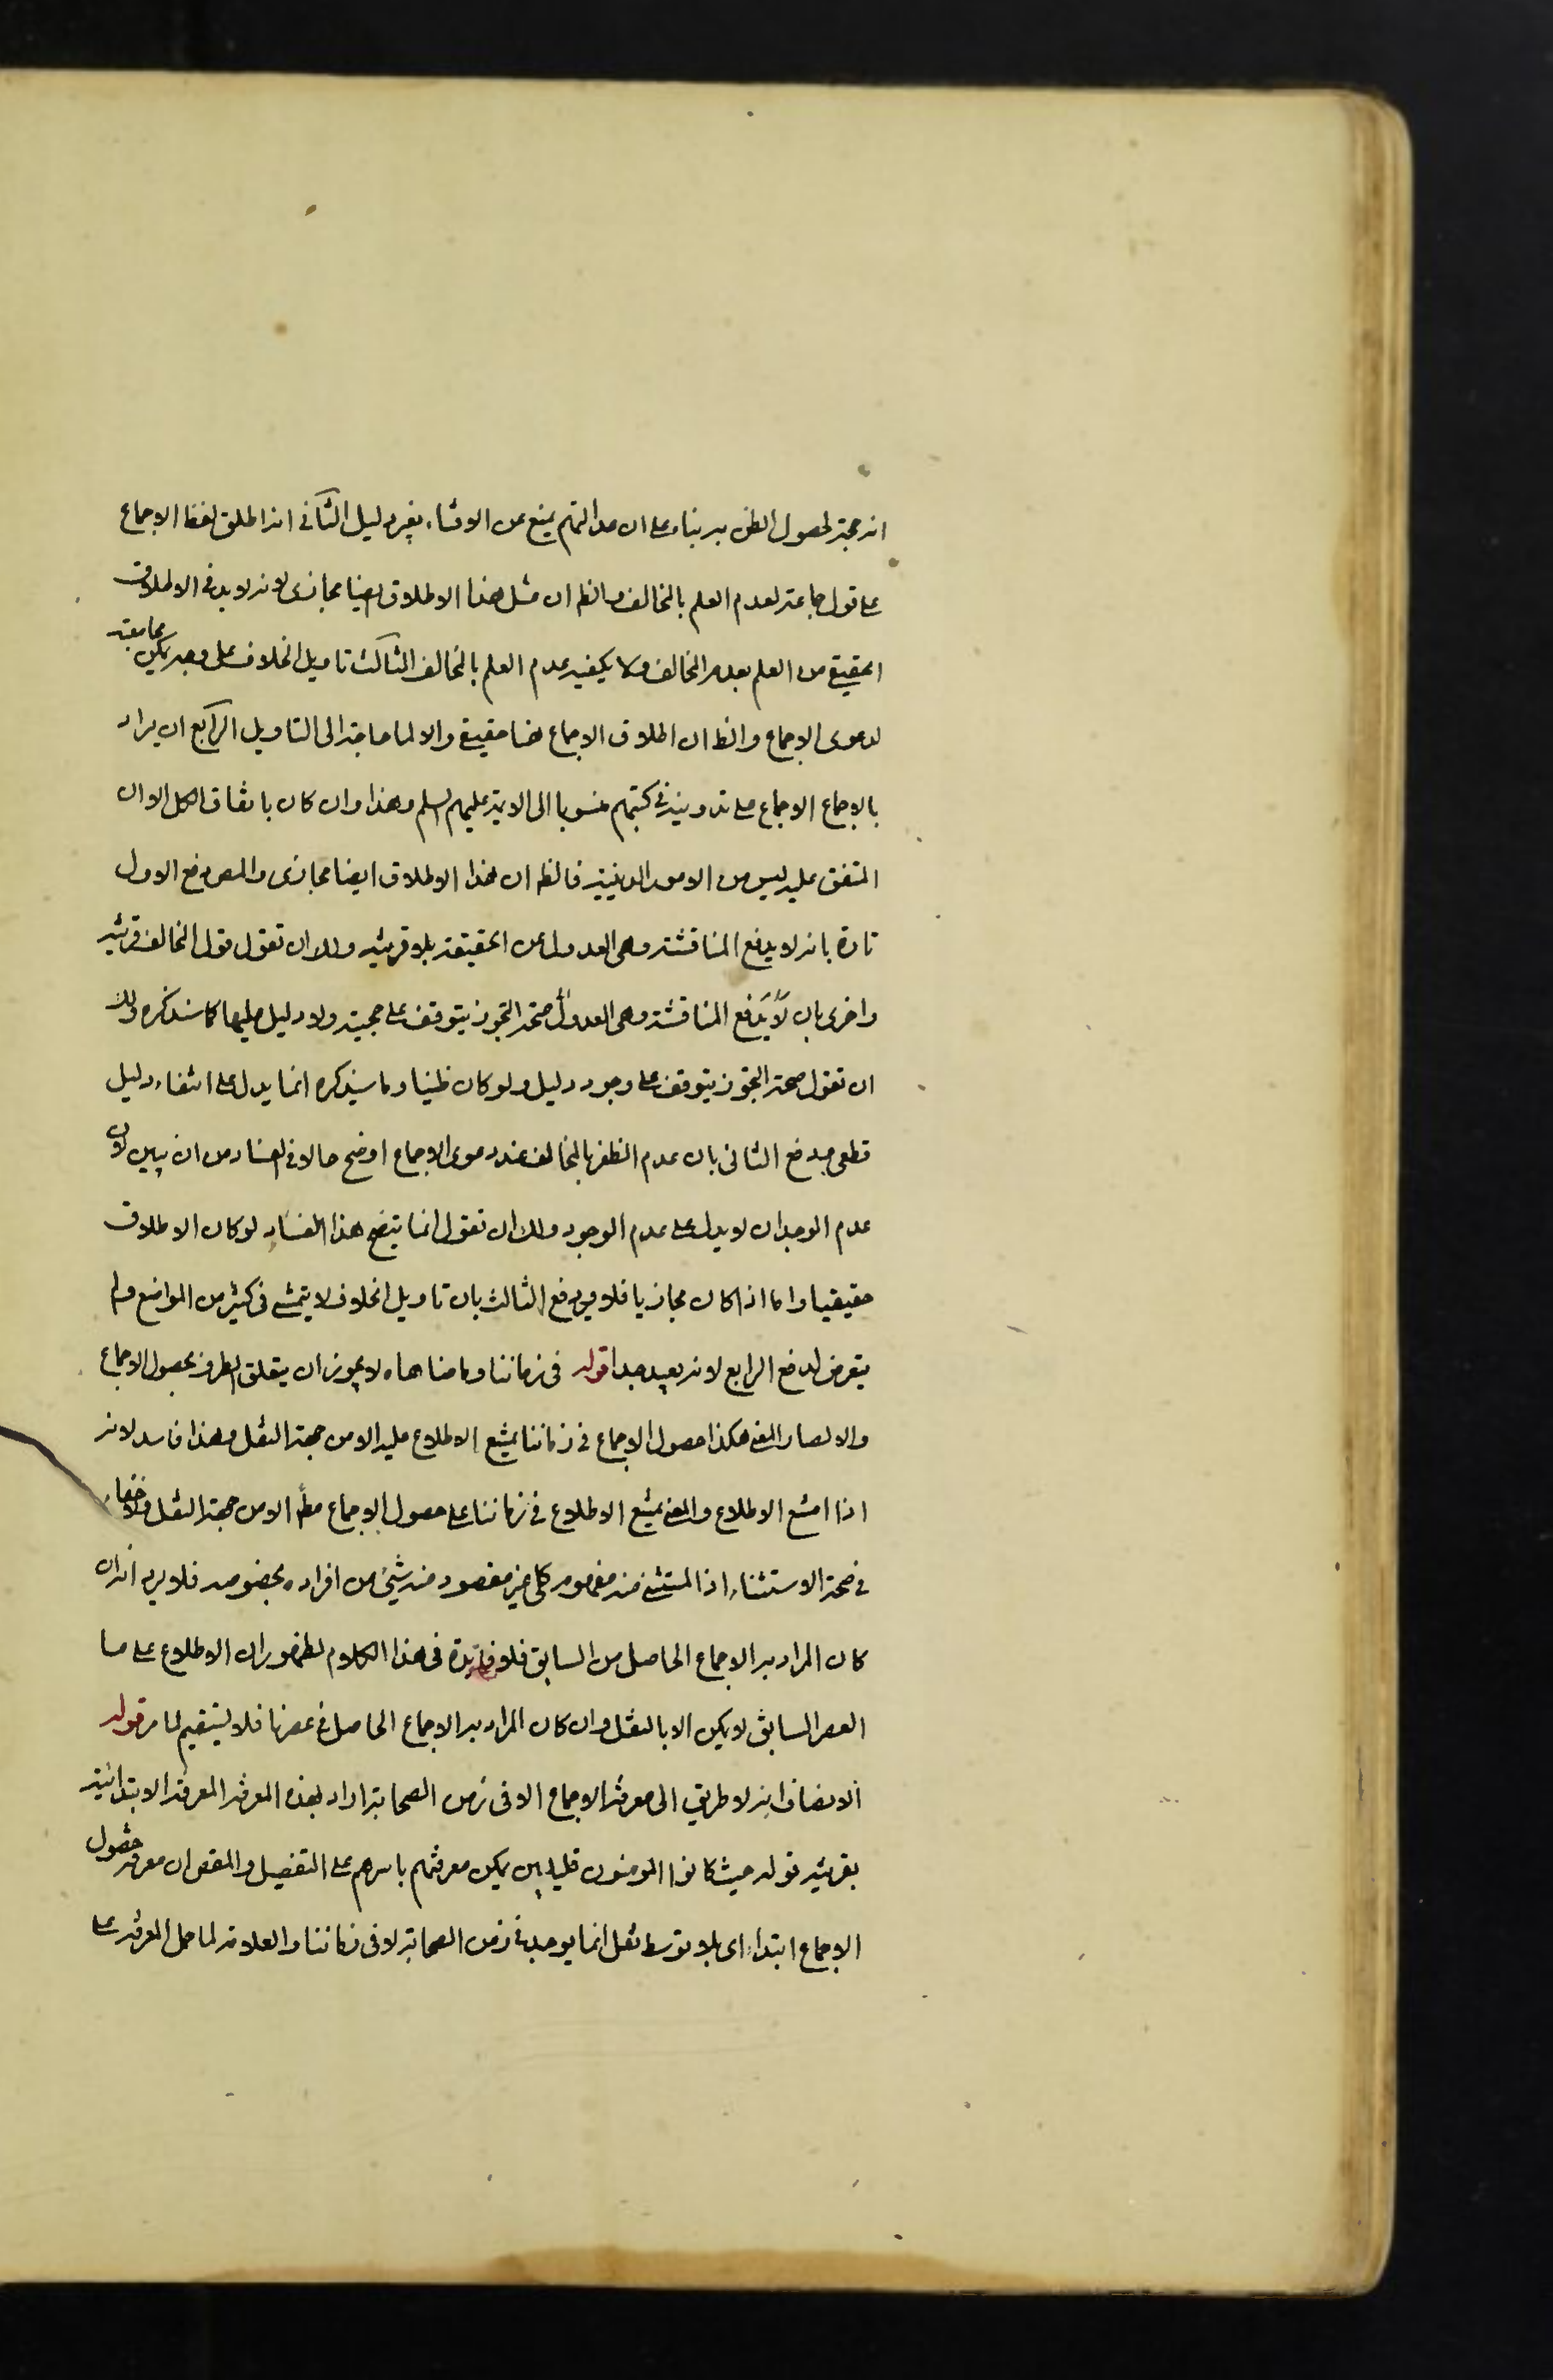 انه حجة لحصول الظن به بناء على ان عدالتهم يمنع عن الافتاء بغير دليل الثاني انه اطلق لفظ الاجماع
على قول جماعة لعدم العلم بالمخالف والظ ان مثل هذا الاطلاق ايضا مجازى لانه لا بد فى الاطلاق
الحقيقى من العلم بعدم المخالف ولا يكفيه عدم العلم بالمخالف الثالث تاويل الخلاف على وجه يمكن مجامعته
لدعوى الاجماع والظ ان اطلاق الاجماع هنا حقيقى والا لما حاجة الى التاويل الرابع ان يراد
بالاجماع الاجماع على تدوينه فى كتبهم منسوبا الى الائمة عليهم السلم وهذا وان كان باتفاق الكل الا ان
المتفق عليه ليس من الامور الدينية فالظ ان هذا الاطلاق ايضا مجازى والمص دفع الاول
تارة بانه لا يدفع المناقشة وهى العدول عن الحقيقة بلا قرينة ولك ان تقول قول المخالف قرينة
واخرى بان لا يدفع المناقشة وهى العدول صحة التجوز يتوقف على حجيته ولا دليل عليها كما سنذكره ولك
ان تقول صحة التجوز يتوقف على وجود دليل ولو كان ظنيا وما سيذكره انما يدل على انتفاء دليل
قطعى ودفع الثانى بان عدم الظفر بالمخالف عند دعوى الاجماع اوضح حالا فى الفساد من ان يبين لان
عدم الوجدان لا يدل على عدم الوجود ولك ان تقول انما يتضح هذا الفساد لو كان الاطلاق
حقيقيا واما اذا كان مجازيا فلا ودفع الثالث بان تاويل الخلاف لا يتمشى فى كثير من المواضع ولم
يتعرض لدفع الرابع لانه بعيد جدا قوله فى زماننا وما ضاهاه لا يجوز ان يتعلق الظرف بحصول الاجماع
والا لصار المعنى هكذا حصول الاجماع فى زماننا يمتنع الاطلاع عليه الا من جهة النقل وهذا فاسد لانه
اذا امتنع الاطلاع والمعنى يمتنع الاطلاع فى زماننا على حصول الاجماع مط الا من جهة النقل ولا خفاء
فى صحة الاستثناء اذ المستثنى منه مفهوم كلى غير مقصود منه شيئ من افراده بخصوصه فلا يرد انه ان
كان المراد به الاجماع الحاصل من السابق فلا فائدة فى هذا الكلام لظهور ان الاطلاع على ما
العصر السابق لا يمكن الا بالنقل وان كان المراد به الاجماع الحاصل فى عصرنا فلا يستقيم لما مر قوله
الانصاف انه لا طريق الى معرفة الاجماع الا فى زمن الصحابة اراد بهذه المعرفة المعرفة الابتدائية
بقرينة قوله حيث كانوا المومنون قليلين يمكن معرفتهم باسرهم على التفصيل والمقص ان معرفة حصول
الاجماع ابتداء اى بلا توسط نقل انما يوجد فى زمن الصحابة لا فى زماننا والعلامة لما حمل المعرفة على